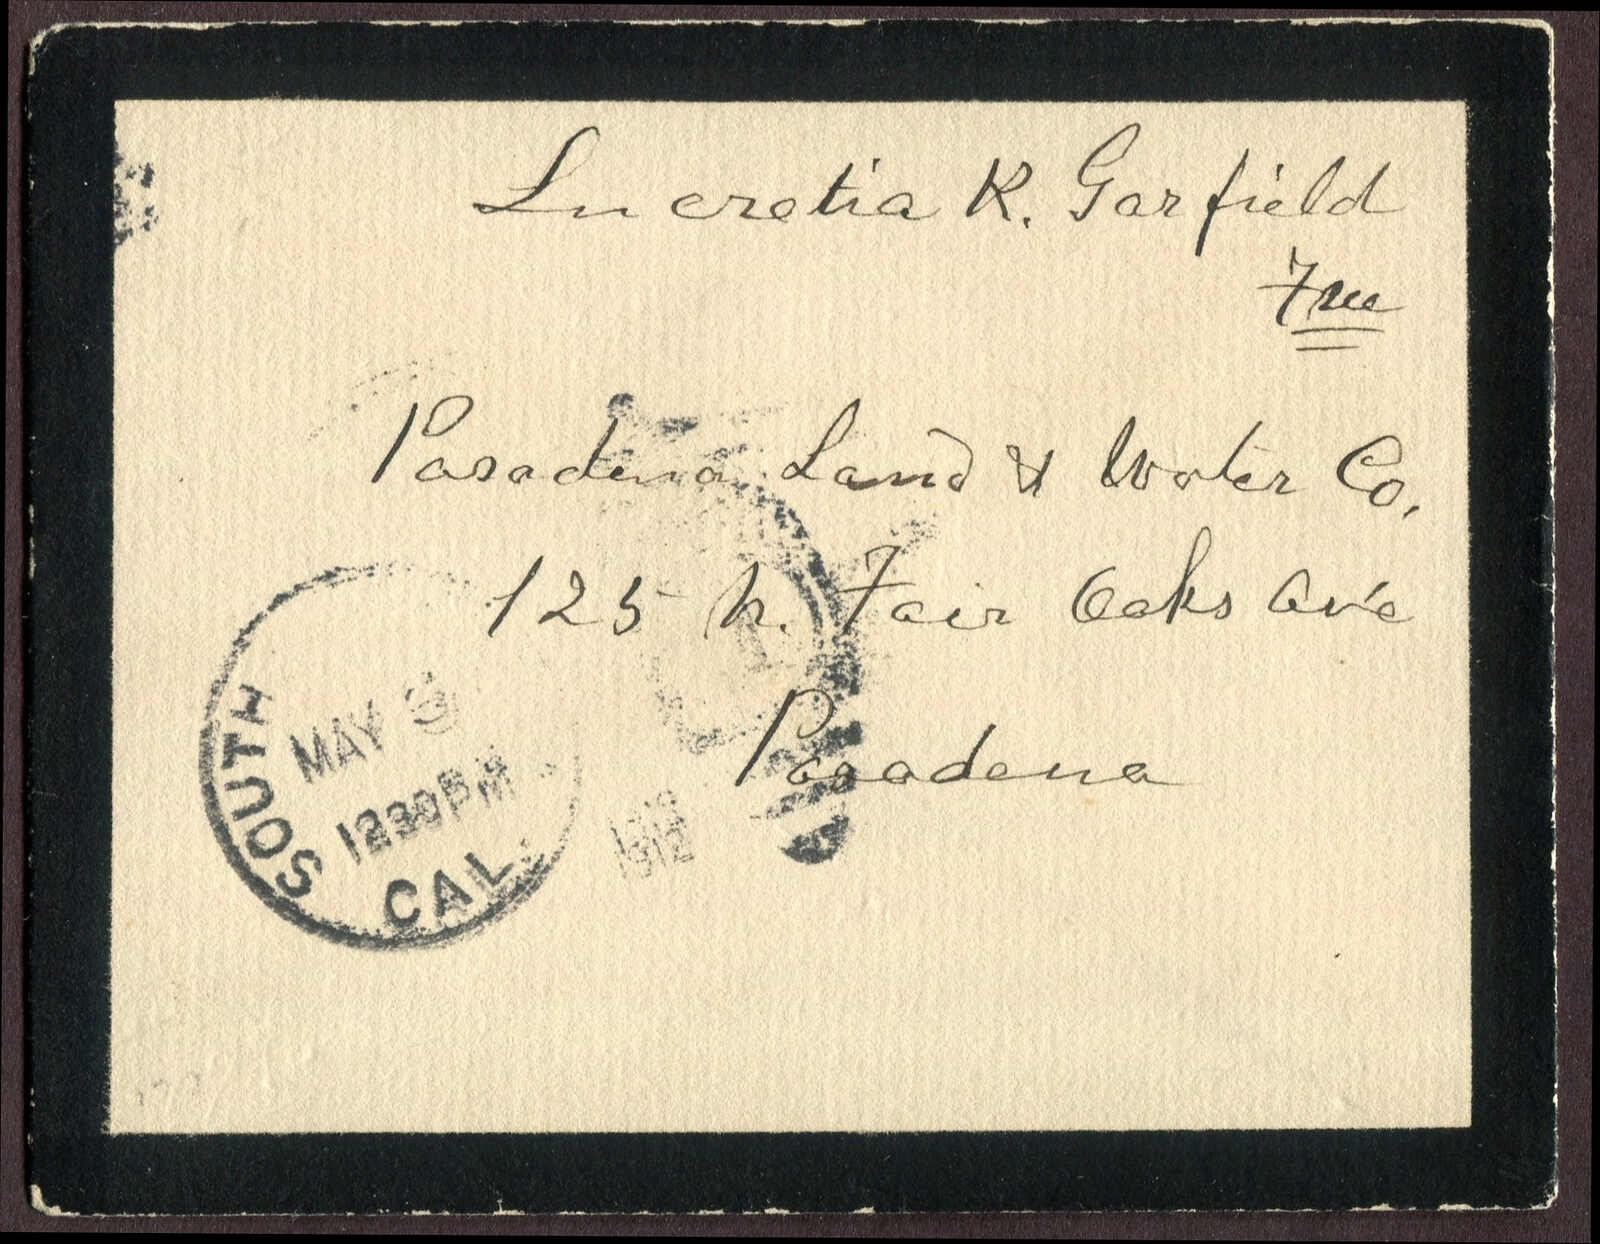 Lucretia R. Garfield
Free
Pasadena Land & Water Co.
125 N. Fair Oaks Ave
Pasadena
SOUTH
MAY
1230PM
CAL.
1912